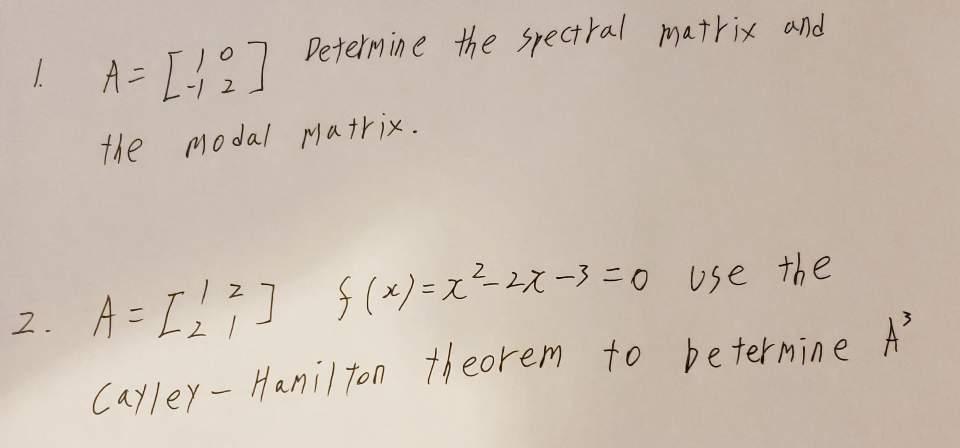 1. A = [1 0 -1 2] Determine the spectral matrix and
the modal matrix.
2. A = [1 2 2 1] f(x) = x²-2x-3=0 use the
Cayley-Hamilton theorem to Determine A³